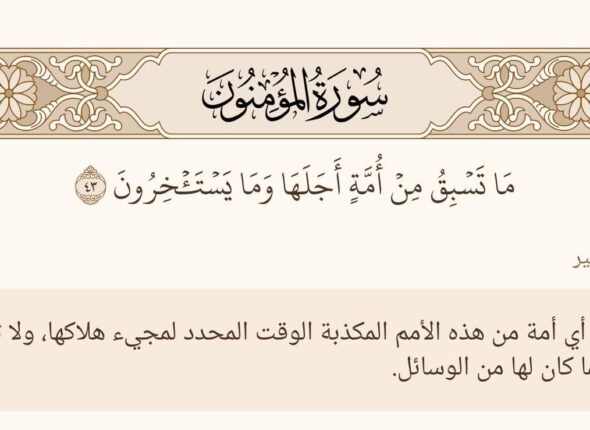 سُورَةُ المُؤْمِنُونَ
مَا تَسْبِقُ مِنْ أُمَّةٍ أَجَلَهَا وَمَا يَسْتَـْٔخِرُونَ ٤٣
أي أمة من هذه الأمم المكذبة الوقت المحدد لمجيء هلاكها، ولا
كان لها من الوسائل.